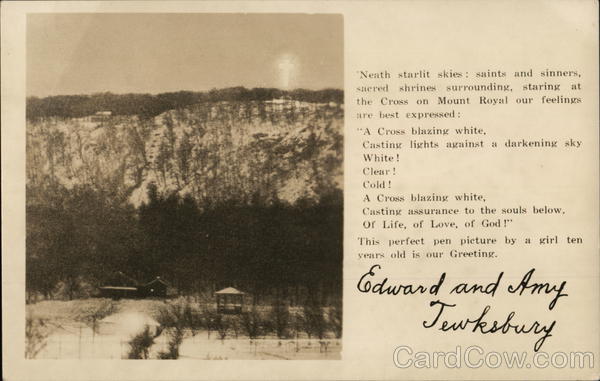 'Neath starlit skies: saints and sinners,
sacred shrines surrounding, staring at
the Cross on Mount Royal our feelings
are best expressed:
"A Cross blazing white,
Casting lights against a darkening sky
White!
Clear!
Cold!
A Cross blazing white,
Casting assurance to the souls below,
Of Life, of Love, of God!"
This perfect pen picture by a girl ten
years old is our Greeting.
Edward and Amy
Tewksbury
CardCow.com